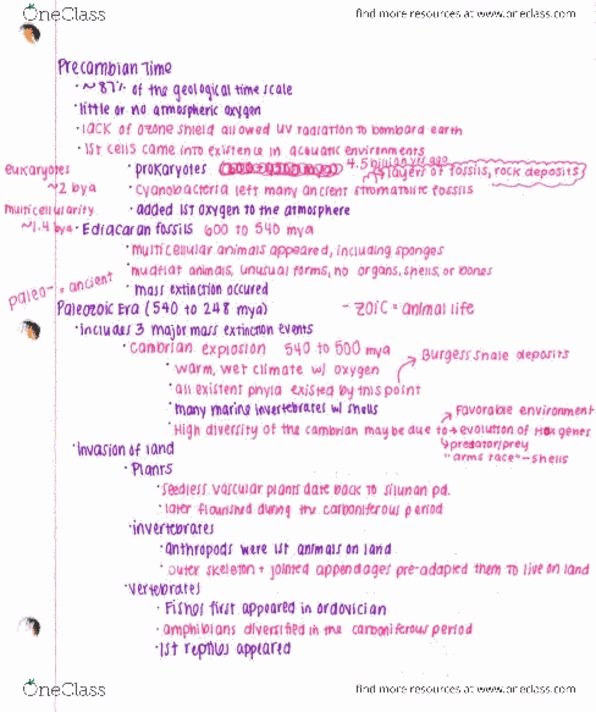 OneClass
find more resources at www.oneclass.com
Precambian Time
• ~87% of the geological time scale
• little or no atmospheric oxygen
• lack of ozone shield allowed UV radiation to bombard earth
• 1st cells came into existence in acquatic environments
eukaryotes ~2 bya
• prokaryotes 4.5 billion yrs ago
↳ layers of fossils, rock deposits
• cyanobacteria left many ancient stromatolite fossils
multicellularity ~1.4 bya
• added 1st oxygen to the atmosphere
• Ediacaran fossils 600 to 540 mya
• multicellular animals appeared, including sponges
• mudflat animals, unusual forms, no organs, shells, or bones
• mass extinction occured
paleo- = ancient
Paleozoic Era (540 to 248 mya) - zoic = animal life
• includes 3 major mass extinction events
• cambrian explosion 540 to 500 mya
Burgess shale deposits
• warm, wet climate w/ oxygen
• all existent phyla existed by this point
• many marine invertebrates w/ shells
→ Favorable environment
• High diversity of the cambrian may be due to → evolution of Hox genes
↳ predator/prey
"arms race" - shells
• Invasion of land
• Plants
• seedless vascular plants date back to silurian pd.
• later flourished during the carboniferous period
• invertebrates
• anthropods were 1st animals on land
• outer skeleton + jointed appendages pre-adapted them to live on land
• vertebrates
• Fishes first appeared in ordovician
• amphibians diversified in the carboniferous period
• 1st reptiles appeared
OneClass
find more resources at www.oneclass.com